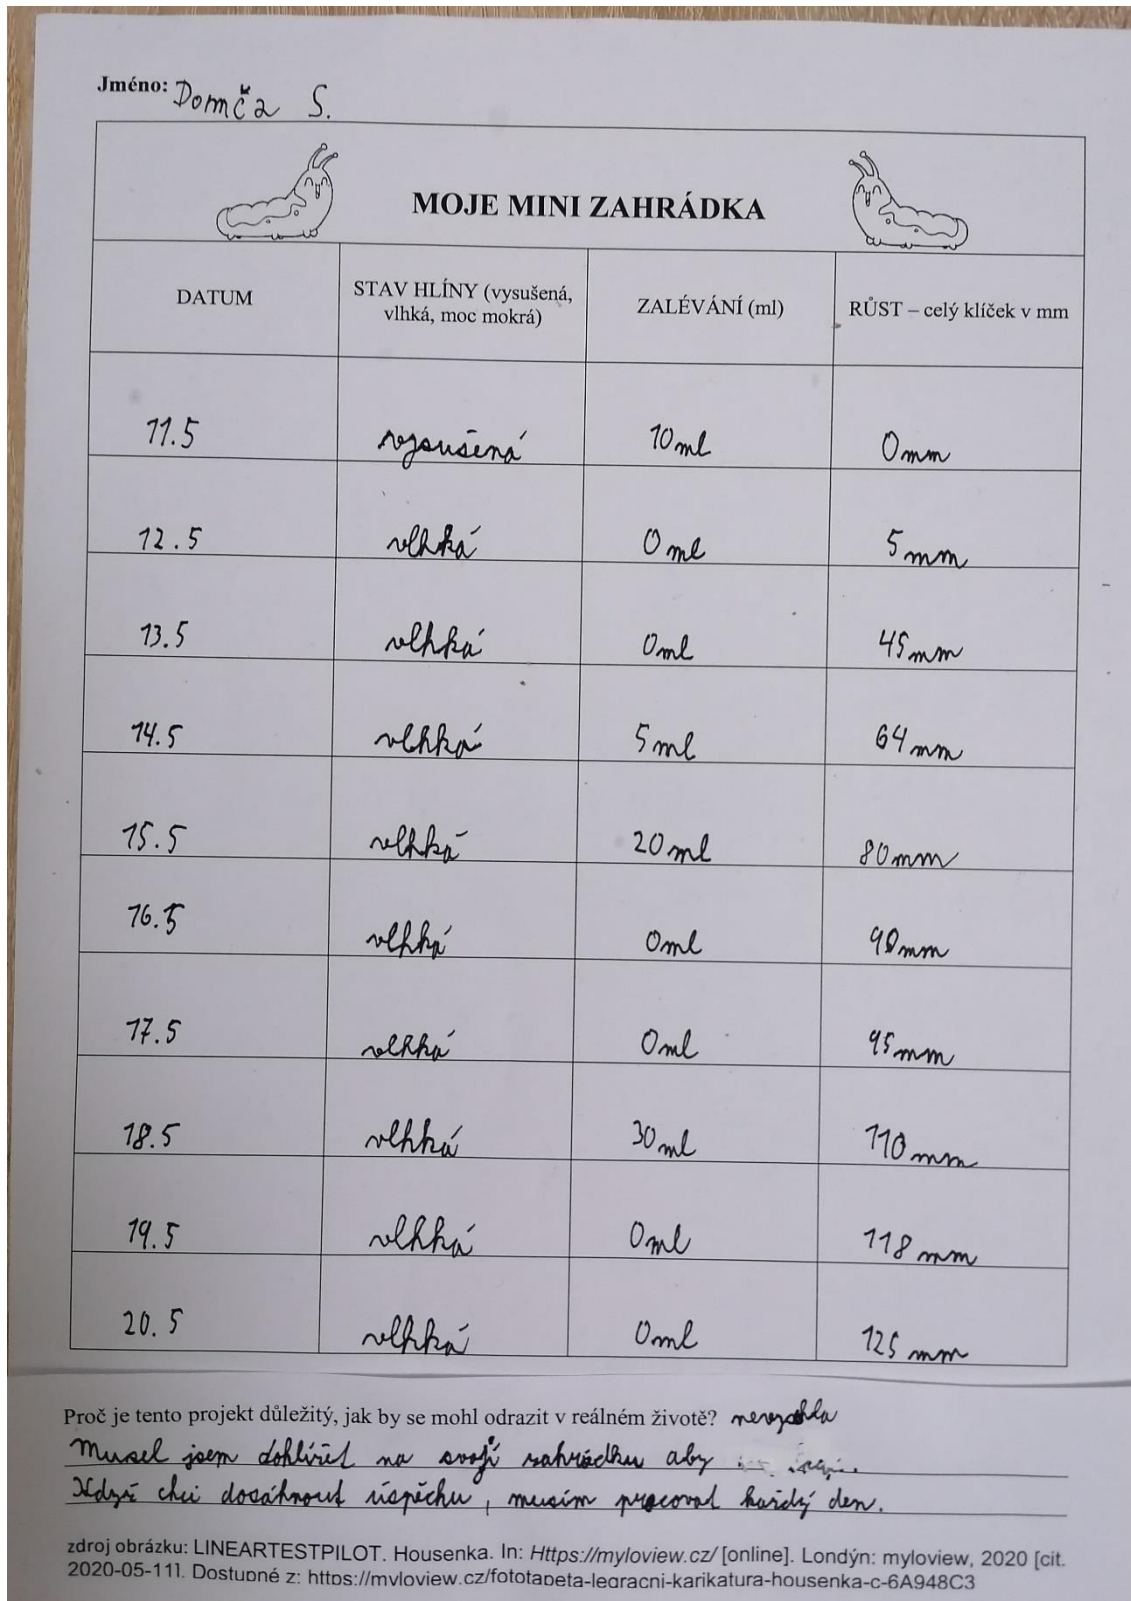 Jméno: Domča S.
MOJE MINI ZAHRÁDKA
DATUM STAV HLÍNY (vysušená, vlhká, moc mokrá) ZALÉVÁNÍ (ml) RŮST – celý klíček v mm
11.5 vysušená 10ml 0mm
12.5 vlhká 0ml 5mm
13.5 vlhká 0ml 45mm
14.5 vlhká 5ml 64mm
15.5 vlhká 20ml 80mm
16.5 vlhká 0ml 90mm
17.5 vlhká 0ml 95mm
18.5 vlhká 30ml 110mm
19.5 vlhká 0ml 118mm
20.5 vlhká 0ml 125mm
Proč je tento projekt důležitý, jak by se mohl odrazit v reálném životě? nevyschla
Musel jsem dohlížet na svojí zahrádku aby
Když chci dosáhnout úspěchu, musím pracovat každý den.
zdroj obrázku: LINEARTESTPILOT. Housenka. In: Https://myloview.cz/ [online]. Londýn: myloview, 2020 [cit.
2020-05-11]. Dostupné z: https://myloview.cz/fototapeta-legracni-karikatura-housenka-c-6A948C3